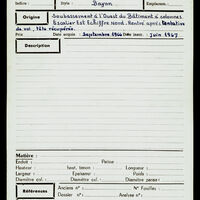 Style : Bayon
Origine :
-Soubassement à l'Ouest du Bâtiment à colonnes
Escalier Est Echiffre Nord. Rentré après tentative
de vol, tête récupérée.
Prix Date acquis Septembre 1966 Date inscr. Juin 1967
Description
Matière :
Enduit : Patine
Hauteur haut. tenon : Longueur :
Largeur : Epaisseur Poids :
Diamètre col. : Diamètre :
Références
Anciens n° : N° Fouilles :
Clichés :